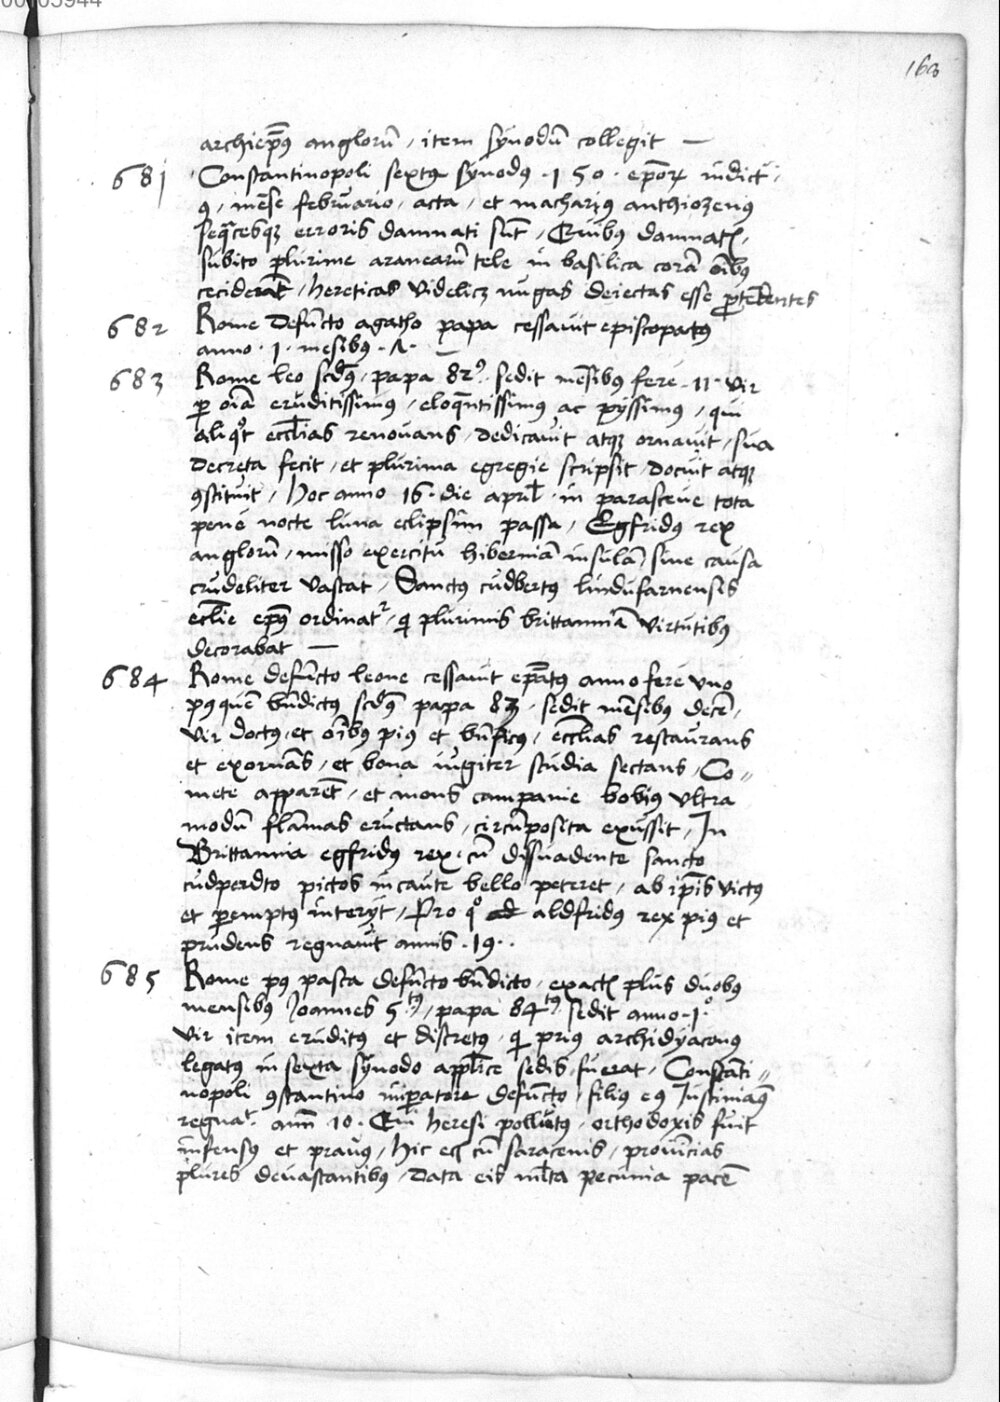 00105944
163
archiep̄us anglorū, item synodū collegit —
681 Constantinopoli sextus synodus · 150 · ep̄orum indict.
9, mēse februario, acta, et macharius anthiozenus
sequacesque erroris damnati sūt, Quibus damnatis,
subito plurime aranearū tele in basilica corā oībus
ceciderāt, hereticas videlicet nugas deiectas esse portēdentes
682 Rome defūcto agatho papa cessauit episcopatus
anno · 1 · mēsibus ·
683 Rome leo scdus, papa 82us. sedit mēsibus fere · 11 · vir
per oīa eruditissimus, eloquentissimus ac pyissimus, qui
aliquot eccl̄ias renouans, dedicauit atque ornauit, sua
decreta fecit, et plurima egregie scripsit, docuit atque
constituit, hoc anno 16 · die april̄ · in parasceue tota
pene nocte luna eclipsim passa, Egfridus rex
anglorū, misso exercitu hiberniā insulā sine causa
crudeliter vastat, Sanctus cudbertus lindufarnensis
ecl̄ie ep̄us ordinatur, qui plurimis brittanniā virtutibus
decorabat —
684 Rome defūcto leone cessauit ep̄atus anno fere vno
post quē bn̄dictus scdus papa 83, sedit mēsibus decē,
vir doctus, et oībus pius et bn̄ficus, eccl̄ias restaurans
et exornās, et bona iugiter studia sectans, Co-
mete apparēt, et mons campanie bobius vltra
modū flāmas eructans, circūposita exussit, In
Brittannia egfridus rex, cū dissuadente sancto
cudperdto pictos incaute bello peteret, ab ip̄is victus
et peremptus interyt, Pro quo aldfridus rex pius et
prudens regnauit annis · 19 ·
685 Rome post pasca defūcto bn̄dicto, exactis plus duobus
mensibus Joannes 5tus, papa 84tus sedit anno · 1o
vir item eruditus et discretus, qui prius archidyaconus
legatus in sexta synodo appl̄ice sedis fuerat, Constāti-
nopoli constantino imperatore defūcto, filius eius Justinianus
regnat · ann̄ 10 · Qui heresi pollutus, orthodoxis fuit
infensus et prauus, hic cū saracenis, prouīcias
plures deuastantibus, data eis ml̄ta pecunia pacē